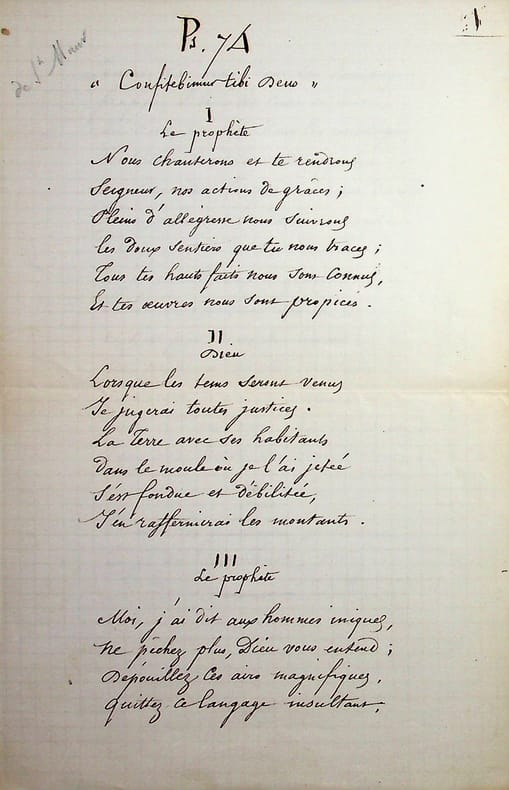 1
de St Maur
Ps. 74
« Confitebimur tibi Deus »
I
Le prophète
Nous chanterons et te rendrons
Seigneur, nos actions de grâces ;
Pleins d'allégresse nous suivrons
les doux sentiers que tu nous traces ;
Tous tes hauts faits nous sont connus,
Et tes œuvres nous sont propices.
II
Dieu
Lorsque les tems seront venus
Je jugerai toutes justices.
La Terre avec ses habitants
Dans le moule où je l'ai jetée
S'est fondue et débilitée,
J'en raffermirai les montants.
III
Le prophète
Moi, j'ai dit aux hommes iniques,
ne pêchez plus, Dieu vous entend ;
Dépouillez ces airs magnifiques,
quittez ce langage insultant,